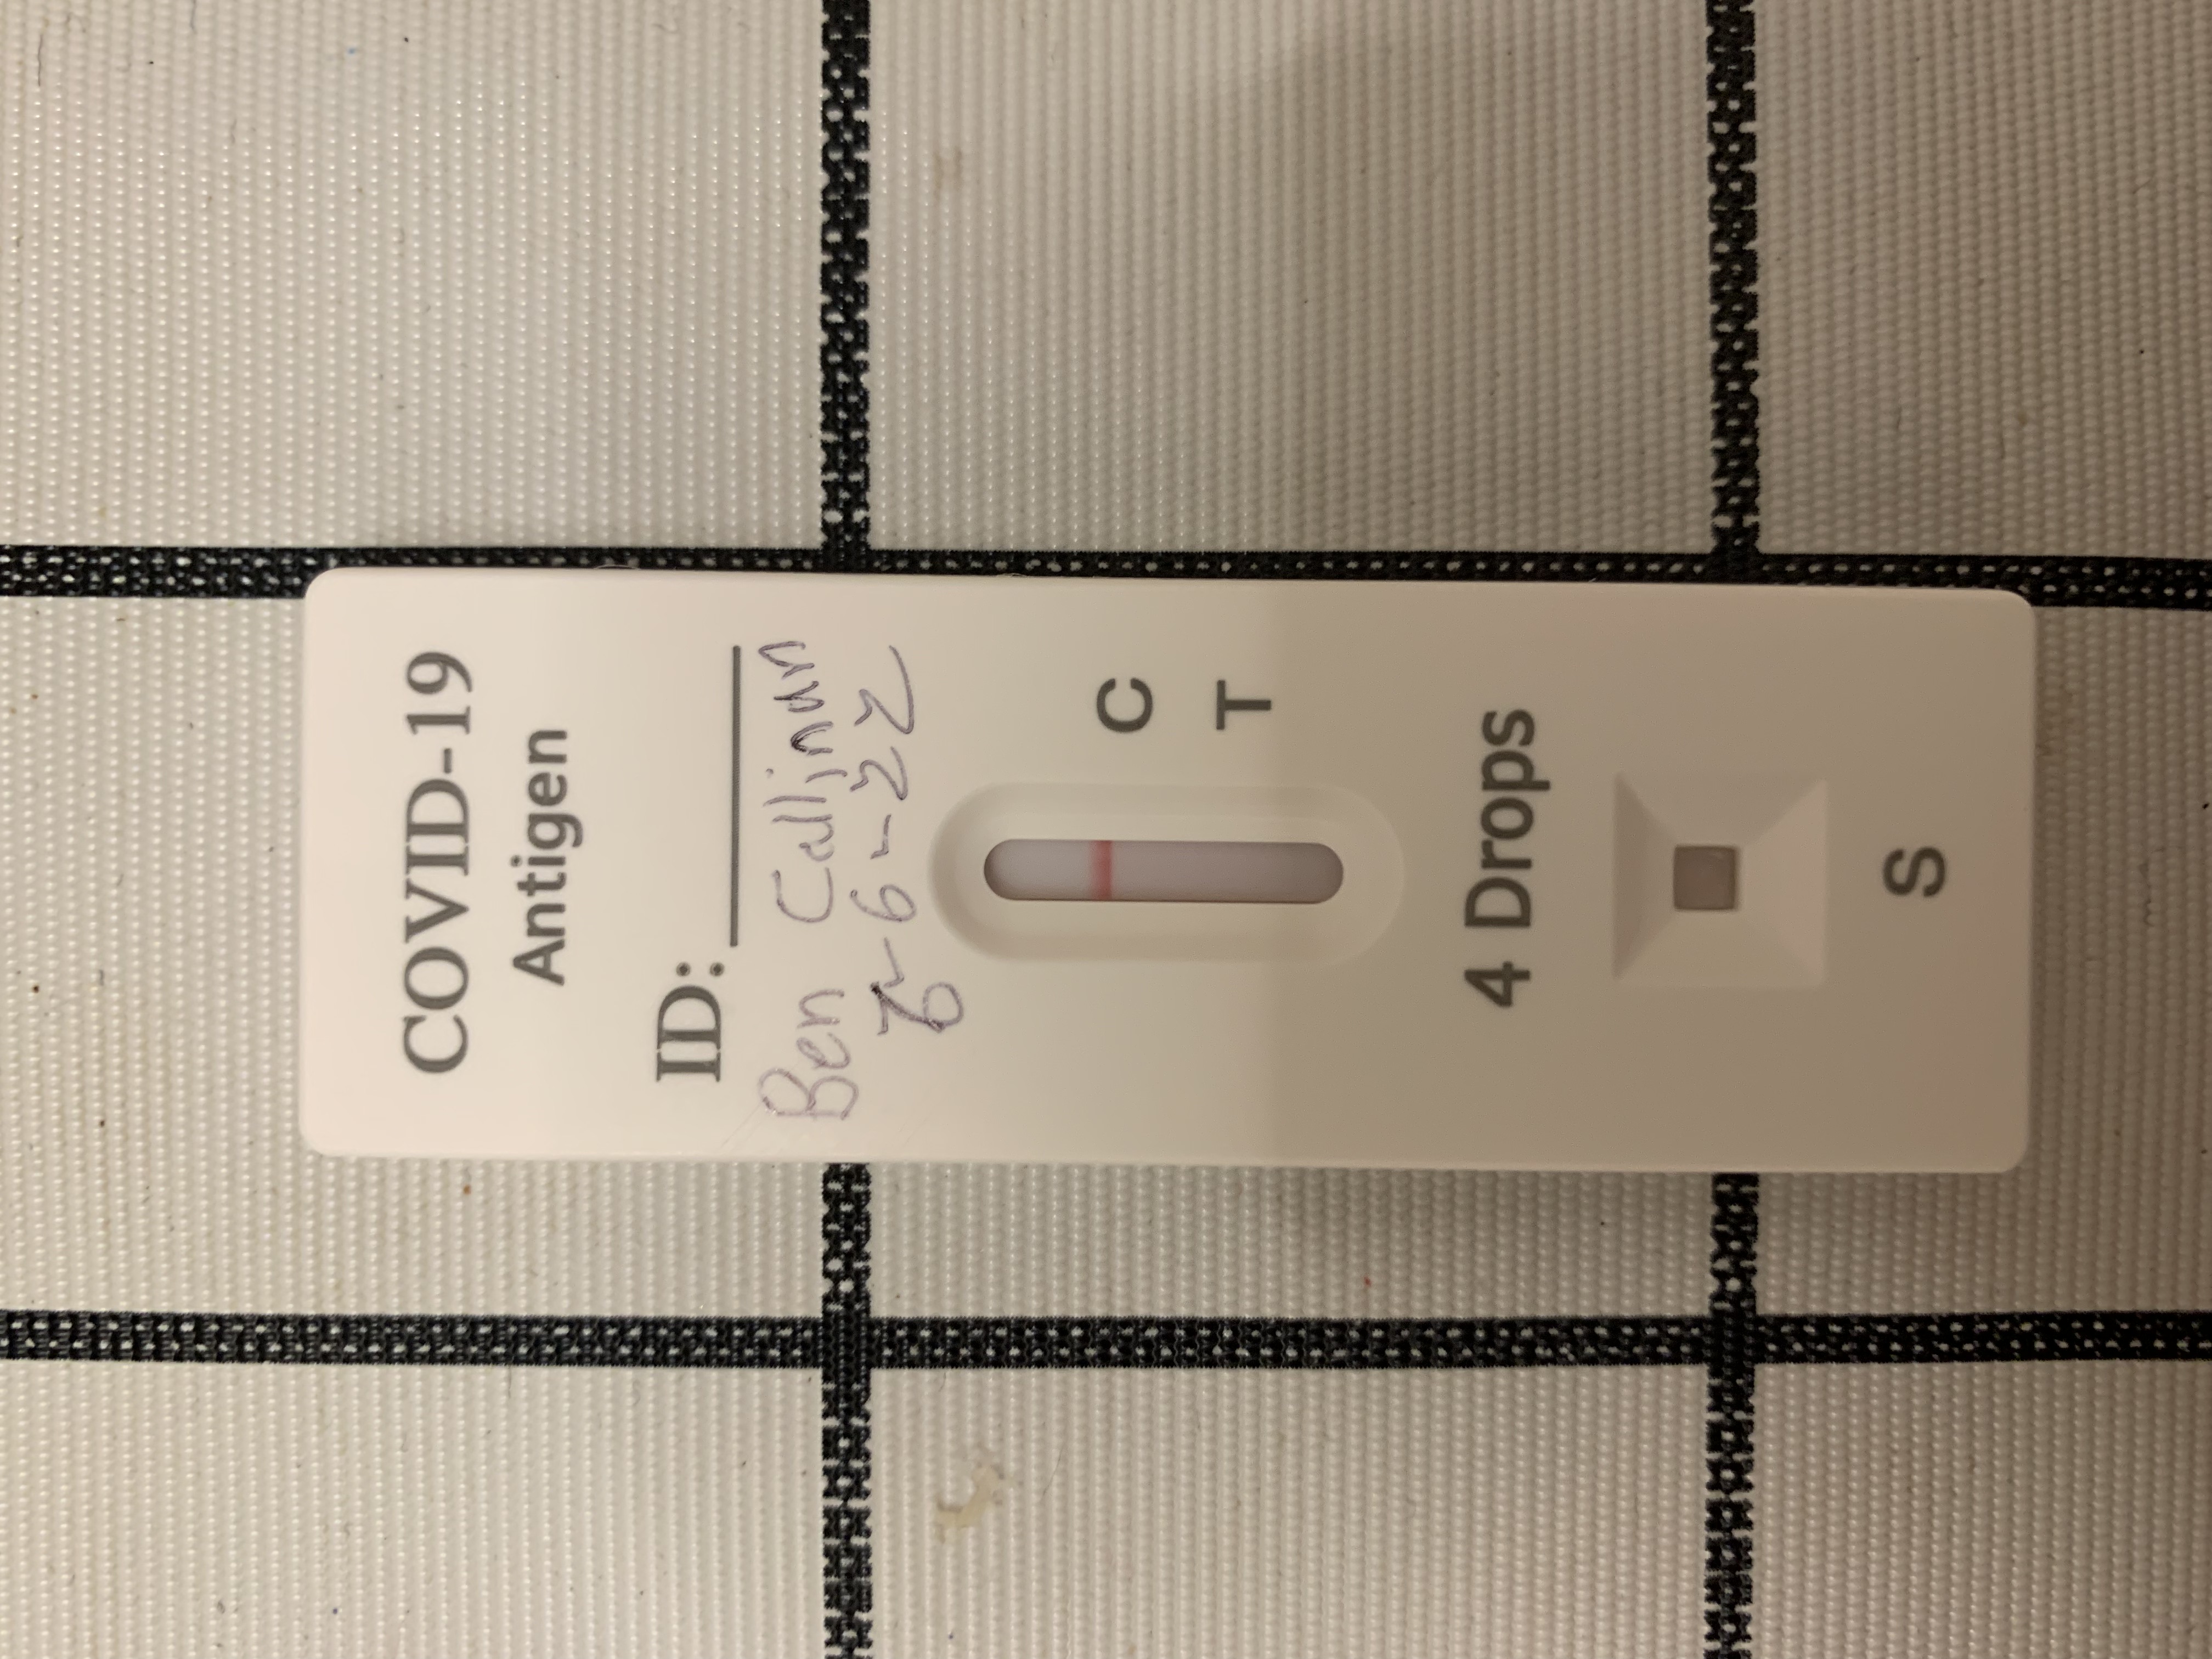 COVID-19
Antigen
ID:
Ben Callinan
6-6-22
C
T
4 Drops
S